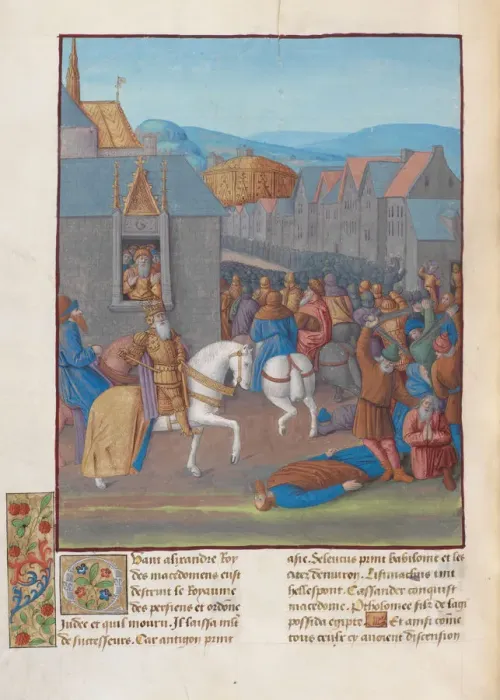 Quant alixandre Roy
des macedoniens eust
destruit le Royaume
des persiens et ordone
Judee et quil mouru. Il laissa
de successeurs. Car antigon print
asie. Seleucus print babiloine et les
citez denuiron. Lisimachus tint
hellespont. Cassander conquist
macedoine. Ptholomee filz de lagi
possida egipte. Et ainsi come
tous ceulx cy auoient discension